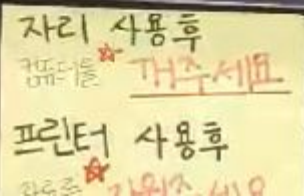 자리 사용후
컴퓨터를 꺼주세요
프린터 사용후